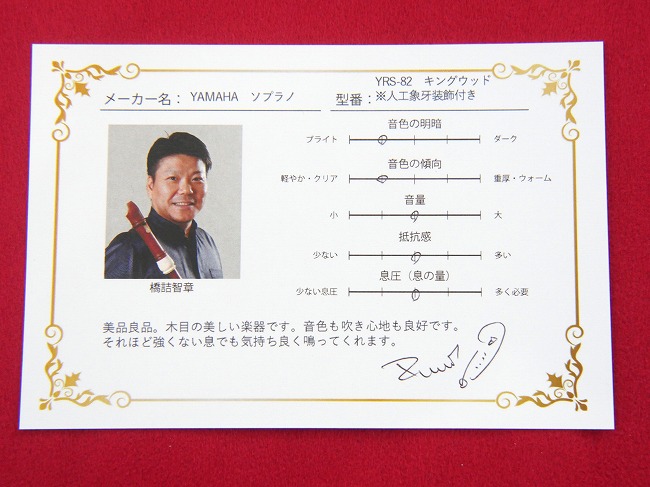 YRS-82 キングウッド
メーカー名： YAMAHA ソプラノ 型番：※人工象牙装飾付き
音色の明暗
ブライト ダーク
音色の傾向
軽やか・クリア 重厚・ウォーム
音量
小 大
抵抗感
少ない 多い
息圧（息の量）
少ない息圧 多く必要
橋詰智章
美品良品。木目の美しい楽器です。音色も吹き心地も良好です。
それほど強くない息でも気持ち良く鳴ってくれます。